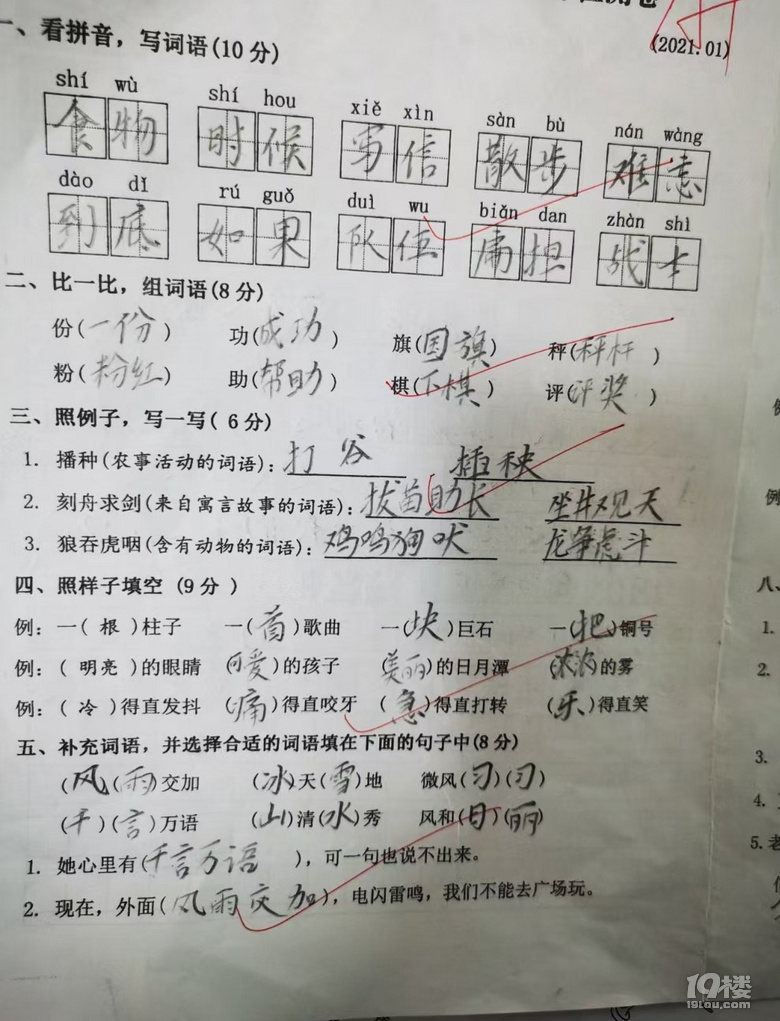 (2021.01)
一、看拼音，写词语(10分)
shí wù shí hou xiě xìn sàn bù nán wàng
食物 时候 写信 散步 难忘
dào dǐ rú guǒ duì wu biǎn dan zhàn shì
到底 如果 队伍 扁担 战士
二、比一比，组词语(8分)
份(一份) 功(成功) 旗(国旗) 秤(秤杆)
粉(粉红) 助(帮助) 棋(下棋) 评(评奖)
三、照例子，写一写( 6分)
1. 播种(农事活动的词语)：打谷 插秧
2. 刻舟求剑(来自寓言故事的词语)：拔苗助长 坐井观天
3. 狼吞虎咽(含有动物的词语)：鸡鸣狗吠 龙争虎斗
四、照样子填空 (9分 )
例：一( 根 )柱子 一(首)歌曲 一(块)巨石 一(把)铜号
例：( 明亮 )的眼睛 (可爱)的孩子 (美丽)的日月潭 (浓浓)的雾
例：( 冷 )得直发抖 (痛)得直咬牙 (急)得直打转 (乐)得直笑
五、补充词语，并选择合适的词语填在下面的句子中(8分)
(风)(雨)交加 (冰)天(雪)地 微风(习)(习)
(千)(言)万语 (山)清(水)秀 风和(日)(丽)
1. 她心里有(千言万语 )，可一句也说不出来。
2. 现在，外面(风雨交加)，电闪雷鸣，我们不能去广场玩。
例
例
八、
1.
2.
3.
4.
5.老
19楼
19lou.com